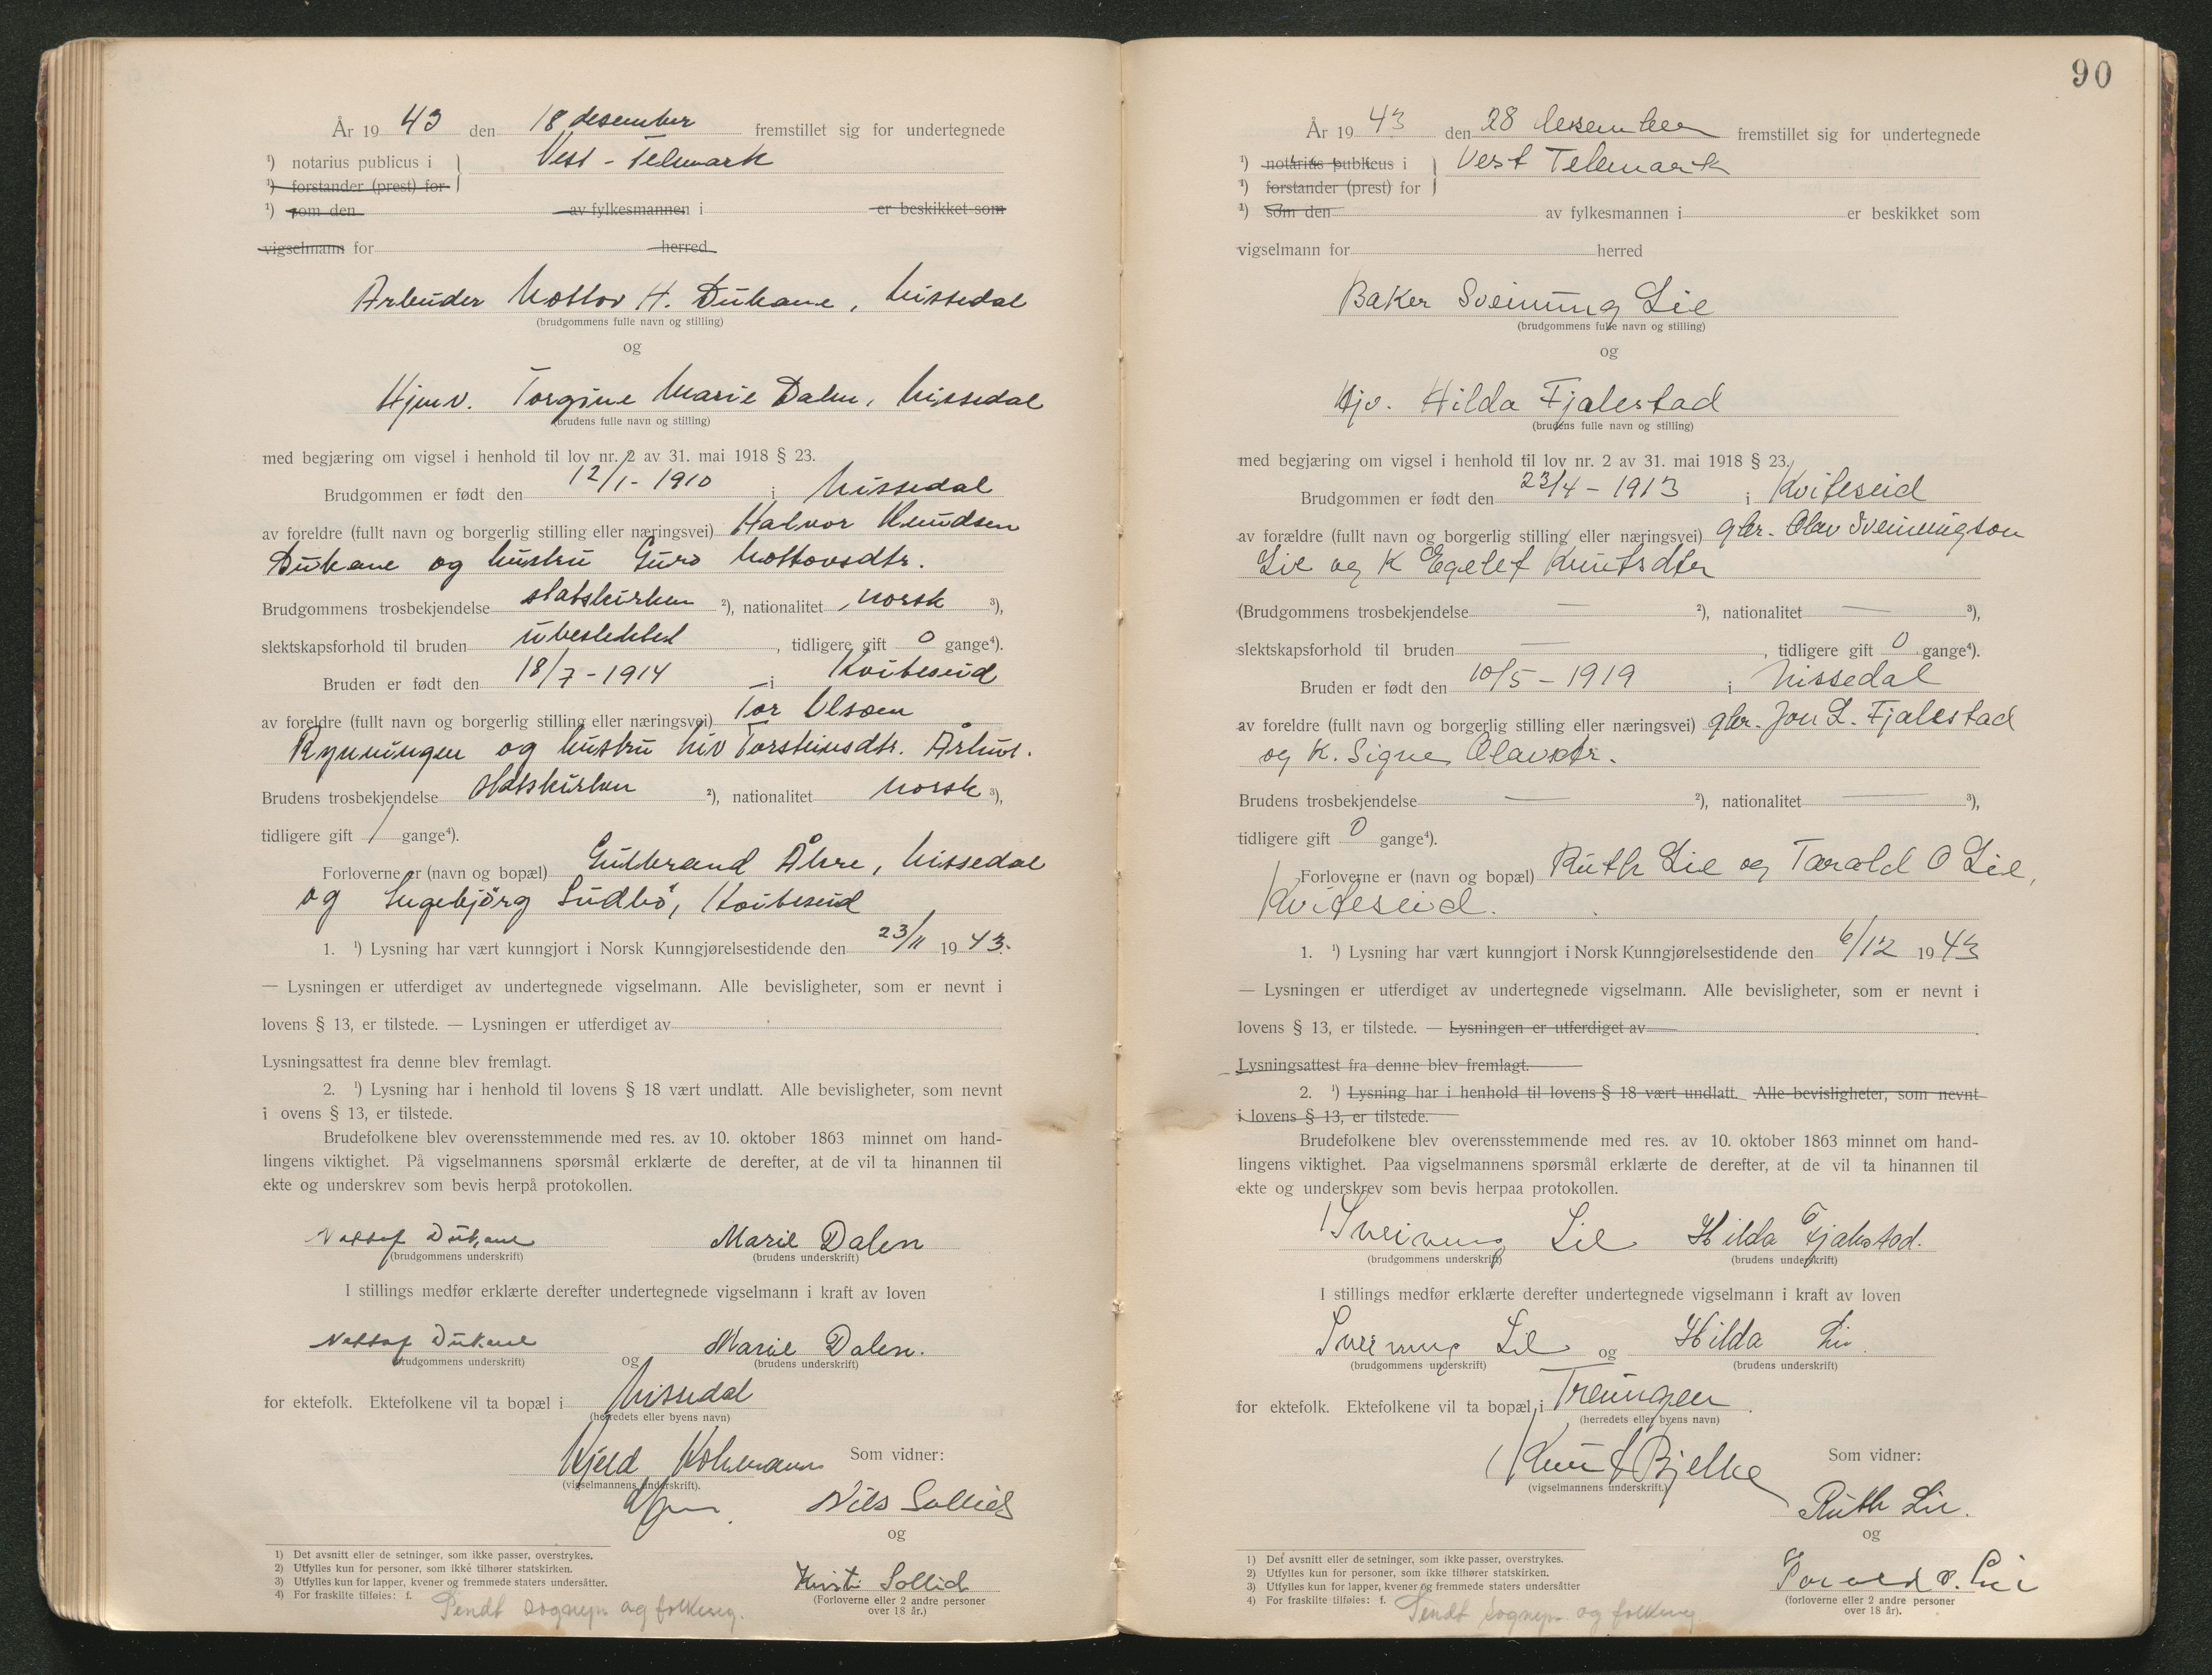 År 19 43 den 18 desember fremstillet sig for undertegnede
¹) notarius publicus i } Vest-Telemark
¹) forstander (prest) for
¹) som den av fylkesmannen i er beskikket som
vigselmann for herred
Arbeider Nottov H. Dukane, Nissedal
(brudgommens fulle navn og stilling)
og
Hjemv. Torgine Marie Dalen, Nissedal
(brudens fulle navn og stilling)
med begjæring om vigsel i henhold til lov nr. 2 av 31. mai 1918 § 23.
Brudgommen er født den 12/1-1910 i Nissedal
av foreldre (fullt navn og borgerlig stilling eller næringsvei) Halvor Knudsen
Dukane og hustru Guro Nottovsdtr.
Brudgommens trosbekjendelse statskirken ²), nationalitet norsk ³),
slektskapsforhold til bruden ubeslektet, tidligere gift 0 gange⁴).
Bruden er født den 18/7-1914 i Kviteseid
av foreldre (fullt navn og borgerlig stilling eller næringsvei) Tor Olsen
Rynningen og hustru Liv Torsteinsdtr. Århus.
Brudens trosbekjendelse statskirken ²), nationalitet norsk ³),
tidligere gift 1 gange⁴).
Forloverne er (navn og bopæl) Gulbrand Åkre, Nissedal
og Ingebjörg Sudbö, Kviteseid
1. ¹) Lysning har vært kunngjort i Norsk Kunngjørelsestidende den 23/11 1943.
— Lysningen er utferdiget av undertegnede vigselmann. Alle bevisligheter, som er nevnt i
lovens § 13, er tilstede. — Lysningen er utferdiget av
Lysningsattest fra denne blev fremlagt.
2. ¹) Lysning har i henhold til lovens § 18 vært undlatt. Alle bevisligheter, som nevnt
i ovens § 13, er tilstede.
Brudefolkene blev overensstemmende med res. av 10. oktober 1863 minnet om hand-
lingens viktighet. På vigselmannens spørsmål erklærte de derefter, at de vil ta hinannen til
ekte og underskrev som bevis herpå protokollen.
Nottof Dukane Marie Dalen
(brudgommens underskrift) (brudens underskrift)
I stillings medfør erklærte derefter undertegnede vigselmann i kraft av loven
Nottof Dukane og Marie Dalen.
(brudgommens underskrift) (brudens underskrift)
for ektefolk. Ektefolkene vil ta bopæl i Nissedal
(herredets eller byens navn)
Kjeld Som vidner:
(vigselmannens underskrift).
Nils Sollid
og
Kirsti Sollid
(Forloverne eller 2 andre personer
over 18 år.)
1) Det avsnitt eller de setninger, som ikke passer, overstrykes.
2) Utfylles kun for personer, som ikke tilhører statskirken.
3) Utfylles kun for lapper, kvener og fremmede staters undersåtter.
4) For fraskilte tilføies: f.
Sendt sognepr. og folkereg.
90
År 19 43 den 28 desember fremstillet sig for undertegnede
¹) notarius publicus i } Vest Telemark
¹) forstander (prest) for
¹) som den av fylkesmannen i er beskikket som
vigselmann for herred
Baker Sveinung Lie
(brudgommens fulle navn og stilling)
og
Hjv. Hilda Fjalestad
(brudens fulle navn og stilling)
med begjæring om vigsel i henhold til lov nr. 2 av 31. mai 1918 § 23.
Brudgommen er født den 23/4 - 1913 i Kviteseid
av forældre (fullt navn og borgerlig stilling eller næringsvei) gbr. Olav Sveinungson
Lie og K Egelef Knutsdter
(Brudgommens trosbekjendelse — ²), nationalitet — ³),
slektskapsforhold til bruden —, tidligere gift 0 gange⁴).
Bruden er født den 10/5 - 1919 i Nissedal
av foreldre (fullt navn og borgerlig stilling eller næringsvei) gbr. Jon L. Fjalestad
og K. Signe Olavsdtr.
Brudens trosbekjendelse — ²), nationalitet — ³),
tidligere gift 0 gange⁴).
Forloverne er (navn og bopæl) Ruth Lie og Tarald O Lie,
Kviteseid.
1. ¹) Lysning har vært kunngjort i Norsk Kunngjørelsestidende den 6/12 1943
— Lysningen er utferdiget av undertegnede vigselmann. Alle bevisligheter, som er nevnt i
lovens § 13, er tilstede. — Lysningen er utferdiget av
Lysningsattest fra denne blev fremlagt.
2. ¹) Lysning har i henhold til lovens § 18 vært undlatt. Alle bevisligheter, som nevnt
i lovens § 13, er tilstede.
Brudefolkene blev overensstemmende med res. av 10. oktober 1863 minnet om hand-
lingens viktighet. Paa vigselmannens spørsmål erklærte de derefter, at de vil ta hinannen til
ekte og underskrev som bevis herpaa protokollen.
Sveinung Lie Hilda Fjalestad.
(brudgommens underskrift) (brudens underskrift)
I stillings medfør erklærte derefter undertegnede vigselmann i kraft av loven
Sveinung Lie og Hilda Lie.
(brudgommens underskrift) (brudens underskrift)
for ektefolk. Ektefolkene vil ta bopæl i Treungen.
(herredets eller byens navn)
Knut Bjelke Som vidner:
(vigselmannens underskrift.)
Ruth Lie.
og
Tarald O. Lie
(forloverne eller 2 andre personer
over 18 år).
1) Det avsnitt eller de setninger, som ikke passer, overstrykes.
2) Utfylles kun for personer, som ikke tilhører statskirken.
3) Utfylles kun for lapper, kvener og fremmede staters undersåtter
4) For fraskilte tilføies: f.
Sendt sognepr. og folkereg